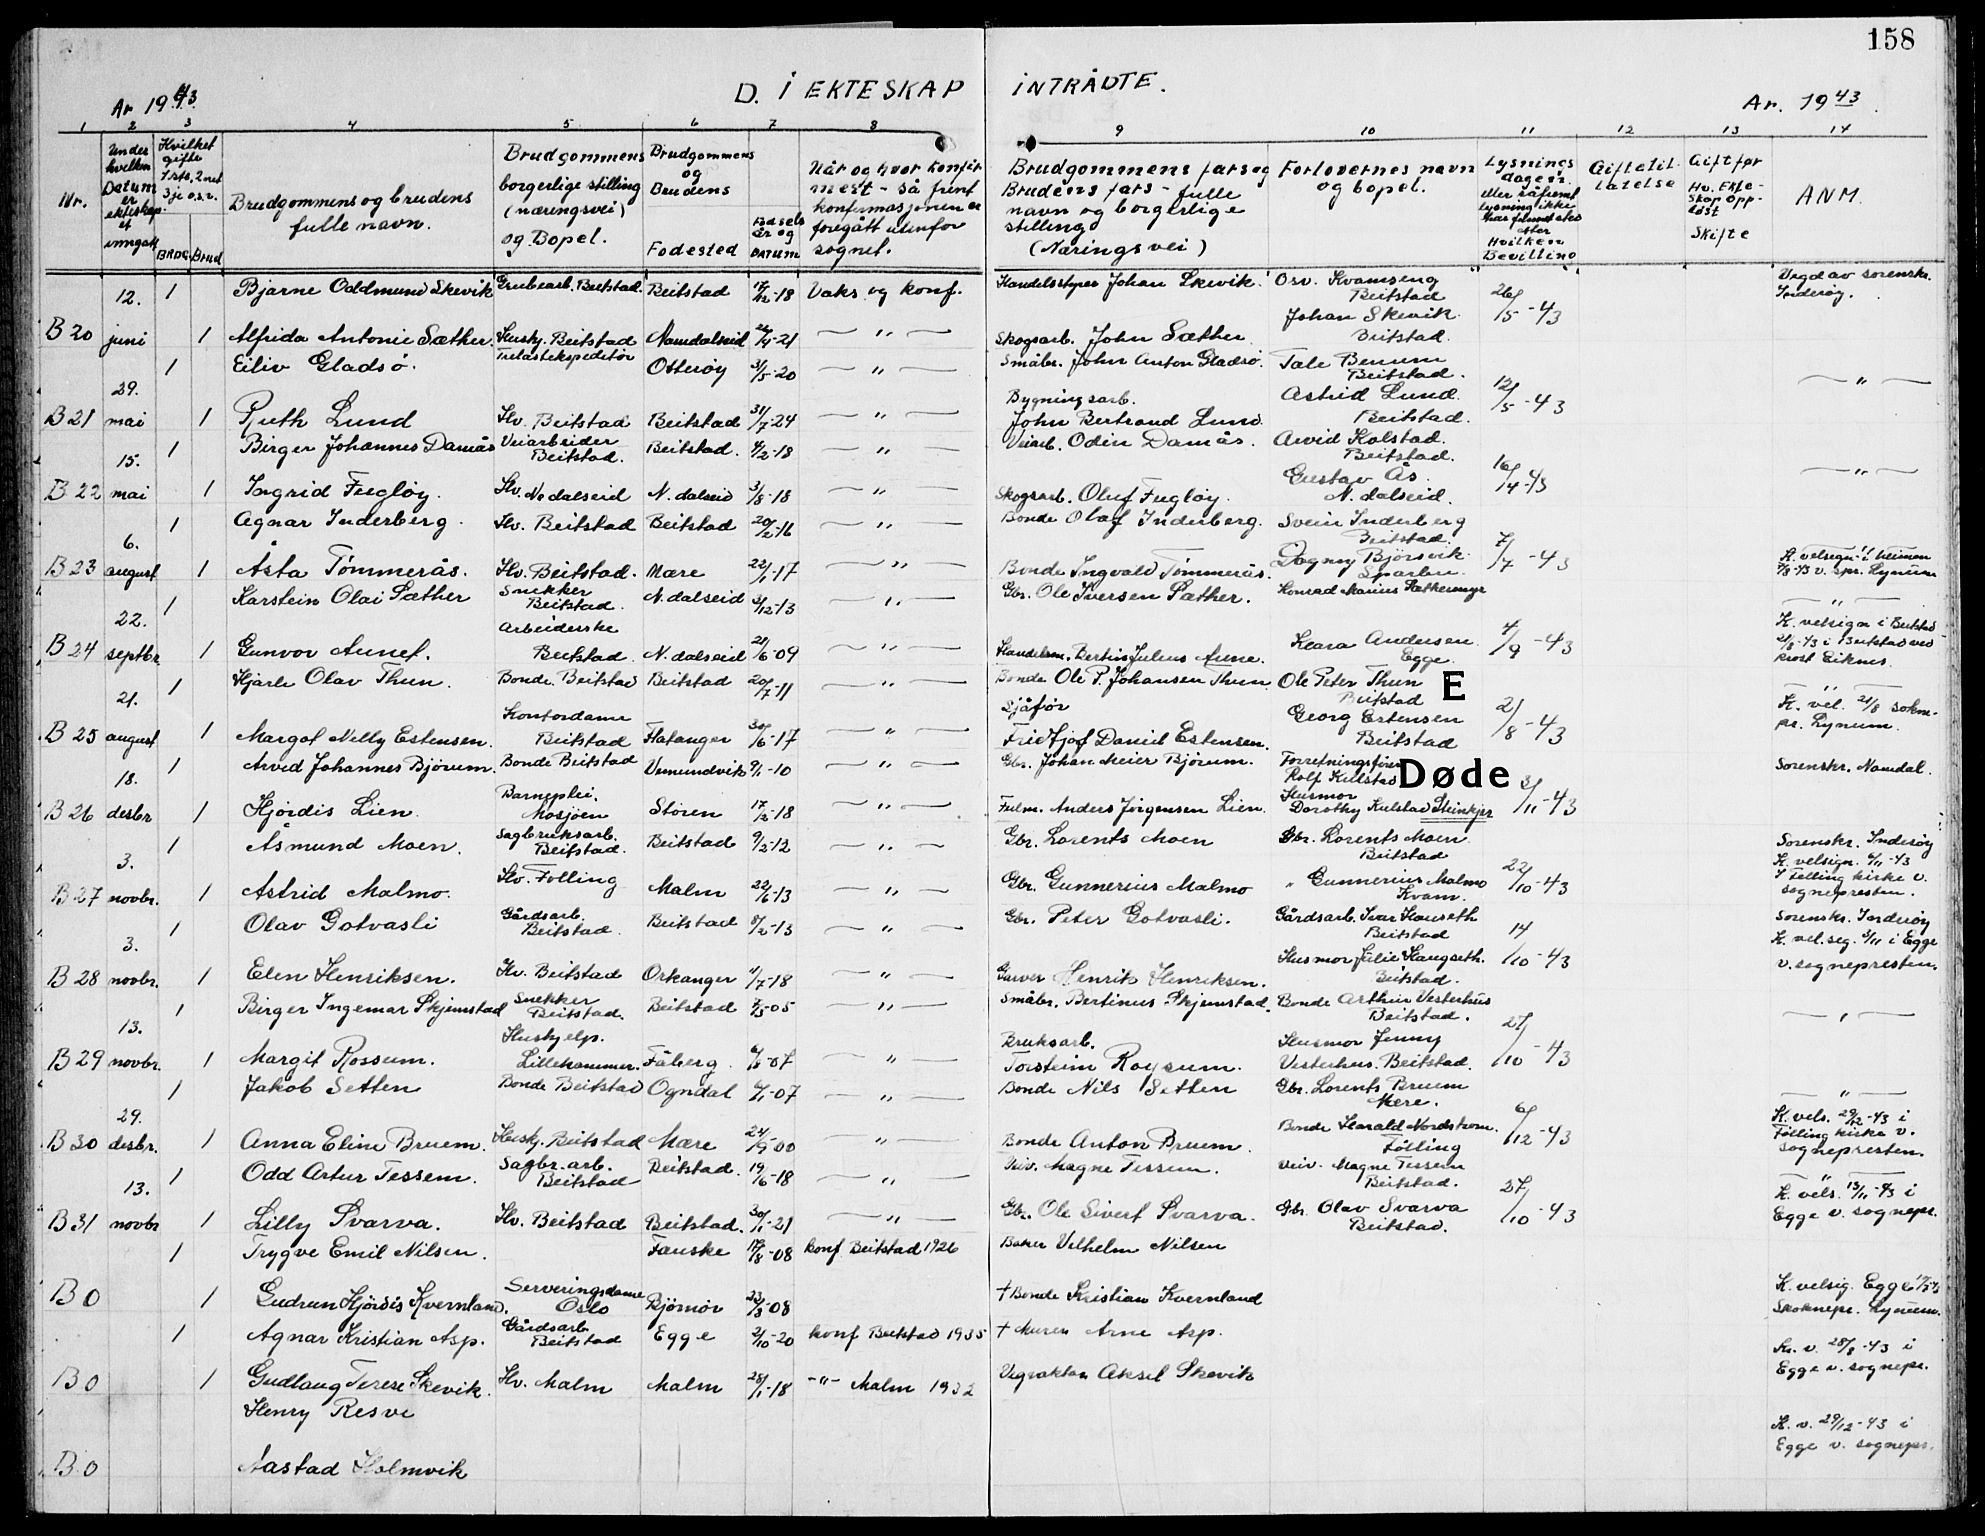 158
D. I EKTESKAP INTRÅDTE.
År 1943. År. 1943.
1 2 3 4 5 6 7 8 9 10 11 12 13 14
Nr.
Under hvilken Datum er ekteskapet inngått
Hvilket gifte 1ste, 2net 3je o.s.v.
BRDG. Brud
Brudgommens og brudens fulle navn.
Brudgommens borgerlige stilling (næringsvei) og Bopel.
Brudgommens og Brudens
Fodested
Fødsels år og DATUM
Når og hvor konfirmert - så fremt konfirmasjonen er foregått utenfor sognet.
Brudgommens fars og Brudens fars - fulle navn og borgerlige stilling (Næringsvei)
Forlovernes navn og bopel.
Lysnings dagen eller såfremt lysning ikke har funnet sted etter Hvilken Bevilling
Giftetillatelse
Gift før Hv. Ekteskap oppløst Skifte
ANM.
12. 1 Bjarne Oddmund Skevik Grubearb. Beitstad Beitstad 17/12-18 Vaks. og konf. Handelsstyrer Johan Skevik. Osv. Kvamseng Beitstad 26/5-43 Vigd av sorenskr. Inderøy.
B 20 juni 1 Alfrida Antonie Sæther. Hushj. Beitstad Namdalseid 26/4-21 — " — Skogsarb. John Sæther. Johan Skevik. Beitstad.
29. 1 Eiliv Gladsø. Trelastekspeditør Otterøy 3/5-20 — " — Småbr. John Anton Gladsø. Tale Benum Beitstad. 12/5-43 — " —
B 21 mai 1 Ruth Lund Hv. Beitstad Beitstad 31/7-24 — " — Bygningsarb. John Bertrand Lund. Astrid Lund. Beitstad.
15. 1 Birger Johannes Damås Veiarbeider Beitstad. Beitstad. 4/2-18 — " — Veiarb. Odin Damås. Arvid Kolstad. Beitstad. 16/14-43 — " —
B 22 mai 1 Ingrid Fugløy. Hv. Nedalseid N. dalseid 3/8-18 — " — Skogsarb. Oluf Fugløy. Gustav Ås. N. dalseid.
6. 1 Agnar Inderberg. Hv. Beitstad Beitstad 20/2-16 — " — Bonde Olaf Inderberg. Svein Inderberg Beitstad. 7/7-43
B 23 august 1 Åsta Tømmerås. Hv. Beitstad. Mære 22/1-17 — " — Bonde Ingvald Tømmerås. Dagny Bjørsvik Sparbu. K. velsegn. i heimen 7/8-43 v. spr. Lynum
22. 1 Karstein Olai Sæther Snekker Beitstad. N. dalseid 3/12-13 — " — Gbr. Ole Iversen Sæther. Konrad Marius Sæthermyr 4/9-43 — " —
B 24 septbr. 1 Gunvor Aunet. Arbeiderske Beitstad. N. dalseid 21/6-09 — " — Handelsm. Bertin Julius Aune. Klara Andersen Egge. K. velsign i Beitstad 21/8-43 i Beitstad ved prost Eiknes.
21. 1 Hjarle Olav Thun. Bonde. Beitstad Beitstad 20/7-11 — " — Bonde Ole P. Johansen Thun. Ole Peter Thun Beitstad E 21/8-43 — " —
B 25 august 1 Margot Nelly Estensen. Kontordame Beitstad Flatanger 30/6-17 — " — Sjåfør Fridtjof Daniel Estensen. Georg Estensen Beitstad K. vel. 21/8 sokne-pr. Lynum.
18. 1 Arvid Johannes Bjørum. Bonde Beitstad Vemundvik 9/1-10 — " — Gbr. Johan Meier Bjørum. Forretningsfører Rolf Kulstad Døde 3/11-43 Sorenskr. Namdal.
B 26 desbr 1 Hjørdis Lien. Barneplei. Mosjøen Støren 17/12-18 — " — Fulm. Anders Jørgensen Lien. Husmor Dorothy Kulstad Steinkjer
3. 1 Åsmund Moen. Sagbruksarb. Beitstad. Beitstad 9/2-12 — " — Gbr. Lorents Moen Gbr. Lorents Moen Beitstad 22/10-43 Sorenskr. Inderøy
B 27 novbr. 1 Astrid Malmo. Hv. Følling Malm 22/6-13 — " — Gbr. Gunnerius Malmo " Gunnerius Malmo Kvam. K. velsign. 6/11-43 I Følling kirke v. sognepresten.
3. 1 Olav Gotvasli Gårdsarb. Beitstad. Beitstad 8/2-13 — " — Gbr. Peter Gotvasli. Gårdsarb. Ivar Haugseth Beitstad 14/10-43 Sorenskr. Inderøy
B 28 novbr. 1 Elen Henriksen. Hv. Beitstad Orkanger 4/7-18 — " — Garver Henrik Henriksen. Husmor Julie Haugseth. Beitstad. K. vel.seg. 3/11 i Egge v. sognepresten.
13. 1 Birger Ingemar Skjemstad Snekker Beitstad. Beitstad 7/5-05 — " — Småbr. Bertinus Skjemstad. Bonde Arthur Vesterhus Beitstad. 27/10-43 — " —
B 29 novbr. 1 Margit Rossum. Hushjelp. Lillehammer. Fåberg. 6/8-07 — " — Bruksarb. Torstein Roysum. Husmor Jenny Vesterhus. Beitstad.
29. 1 Jakob Setten Bonde Beitstad Ogndal 4/1-07 — " — Bonde Nils Setten Gbr. Lorents Bruem Mære. 6/12-43 — " —
B 30 desbr. 1 Anna Eline Bruem. Hushj. Beitstad Mære 24/9-00 — " — Bonde Anton Bruem. Bonde Harald Nordstrøm. Følling K. vels. 29/12-43 i Følling kirke v. sognepresten.
13. 1 Odd Artur Tessem. Sagbr. arb. Beitstad Beitstad. 19/6-18 — " — Veiv. Magne Tessem. Veiv. Magne Tessem Beitstad. 27/10-43 — " —
B 31 novbr 1 Lilly Svarva. Hv. Beitstad Beitstad. 30/1-21 — " — Gbr. Ole Sivert Svarva. Gbr. Olav Svarva Beitstad. K. vels. 13/11-43 i Egge v. sognepr.
1 Trygve Emil Nilsen. Fauske 19/8-08 konf. Beitstad 1926 Baker Vilhelm Nilsen
B 0 1 Gudrun Hjørdis Kvernland. Serveringsdame Oslo Bjørnør 23/3-08 + Bonde Kristian Kvernland K. velsig. Egge Soknepr. Lynum.
1 Agnar Kristian Asp. Gårdsarb. Beitstad Egge 2/10-20 konf Beitstad 1935 + Murer Arne Asp.
B 0 1 Gudlaug Terese Skevik. Hv. Malm Malm 28/1-18 -"- Malm 1932 Vegvokter Aksel Skevik Kr. v. 28/8-43 i Egge v. sognepr.
Henry Resve
B 0 Aastad Holmvik K. v. 29/12-43 i Egge v. sognepr.